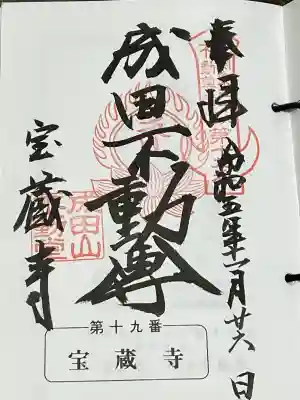 奉拝 五年 月廿六日
成田不動尊
宝蔵寺
成田山
第十九番
宝蔵寺